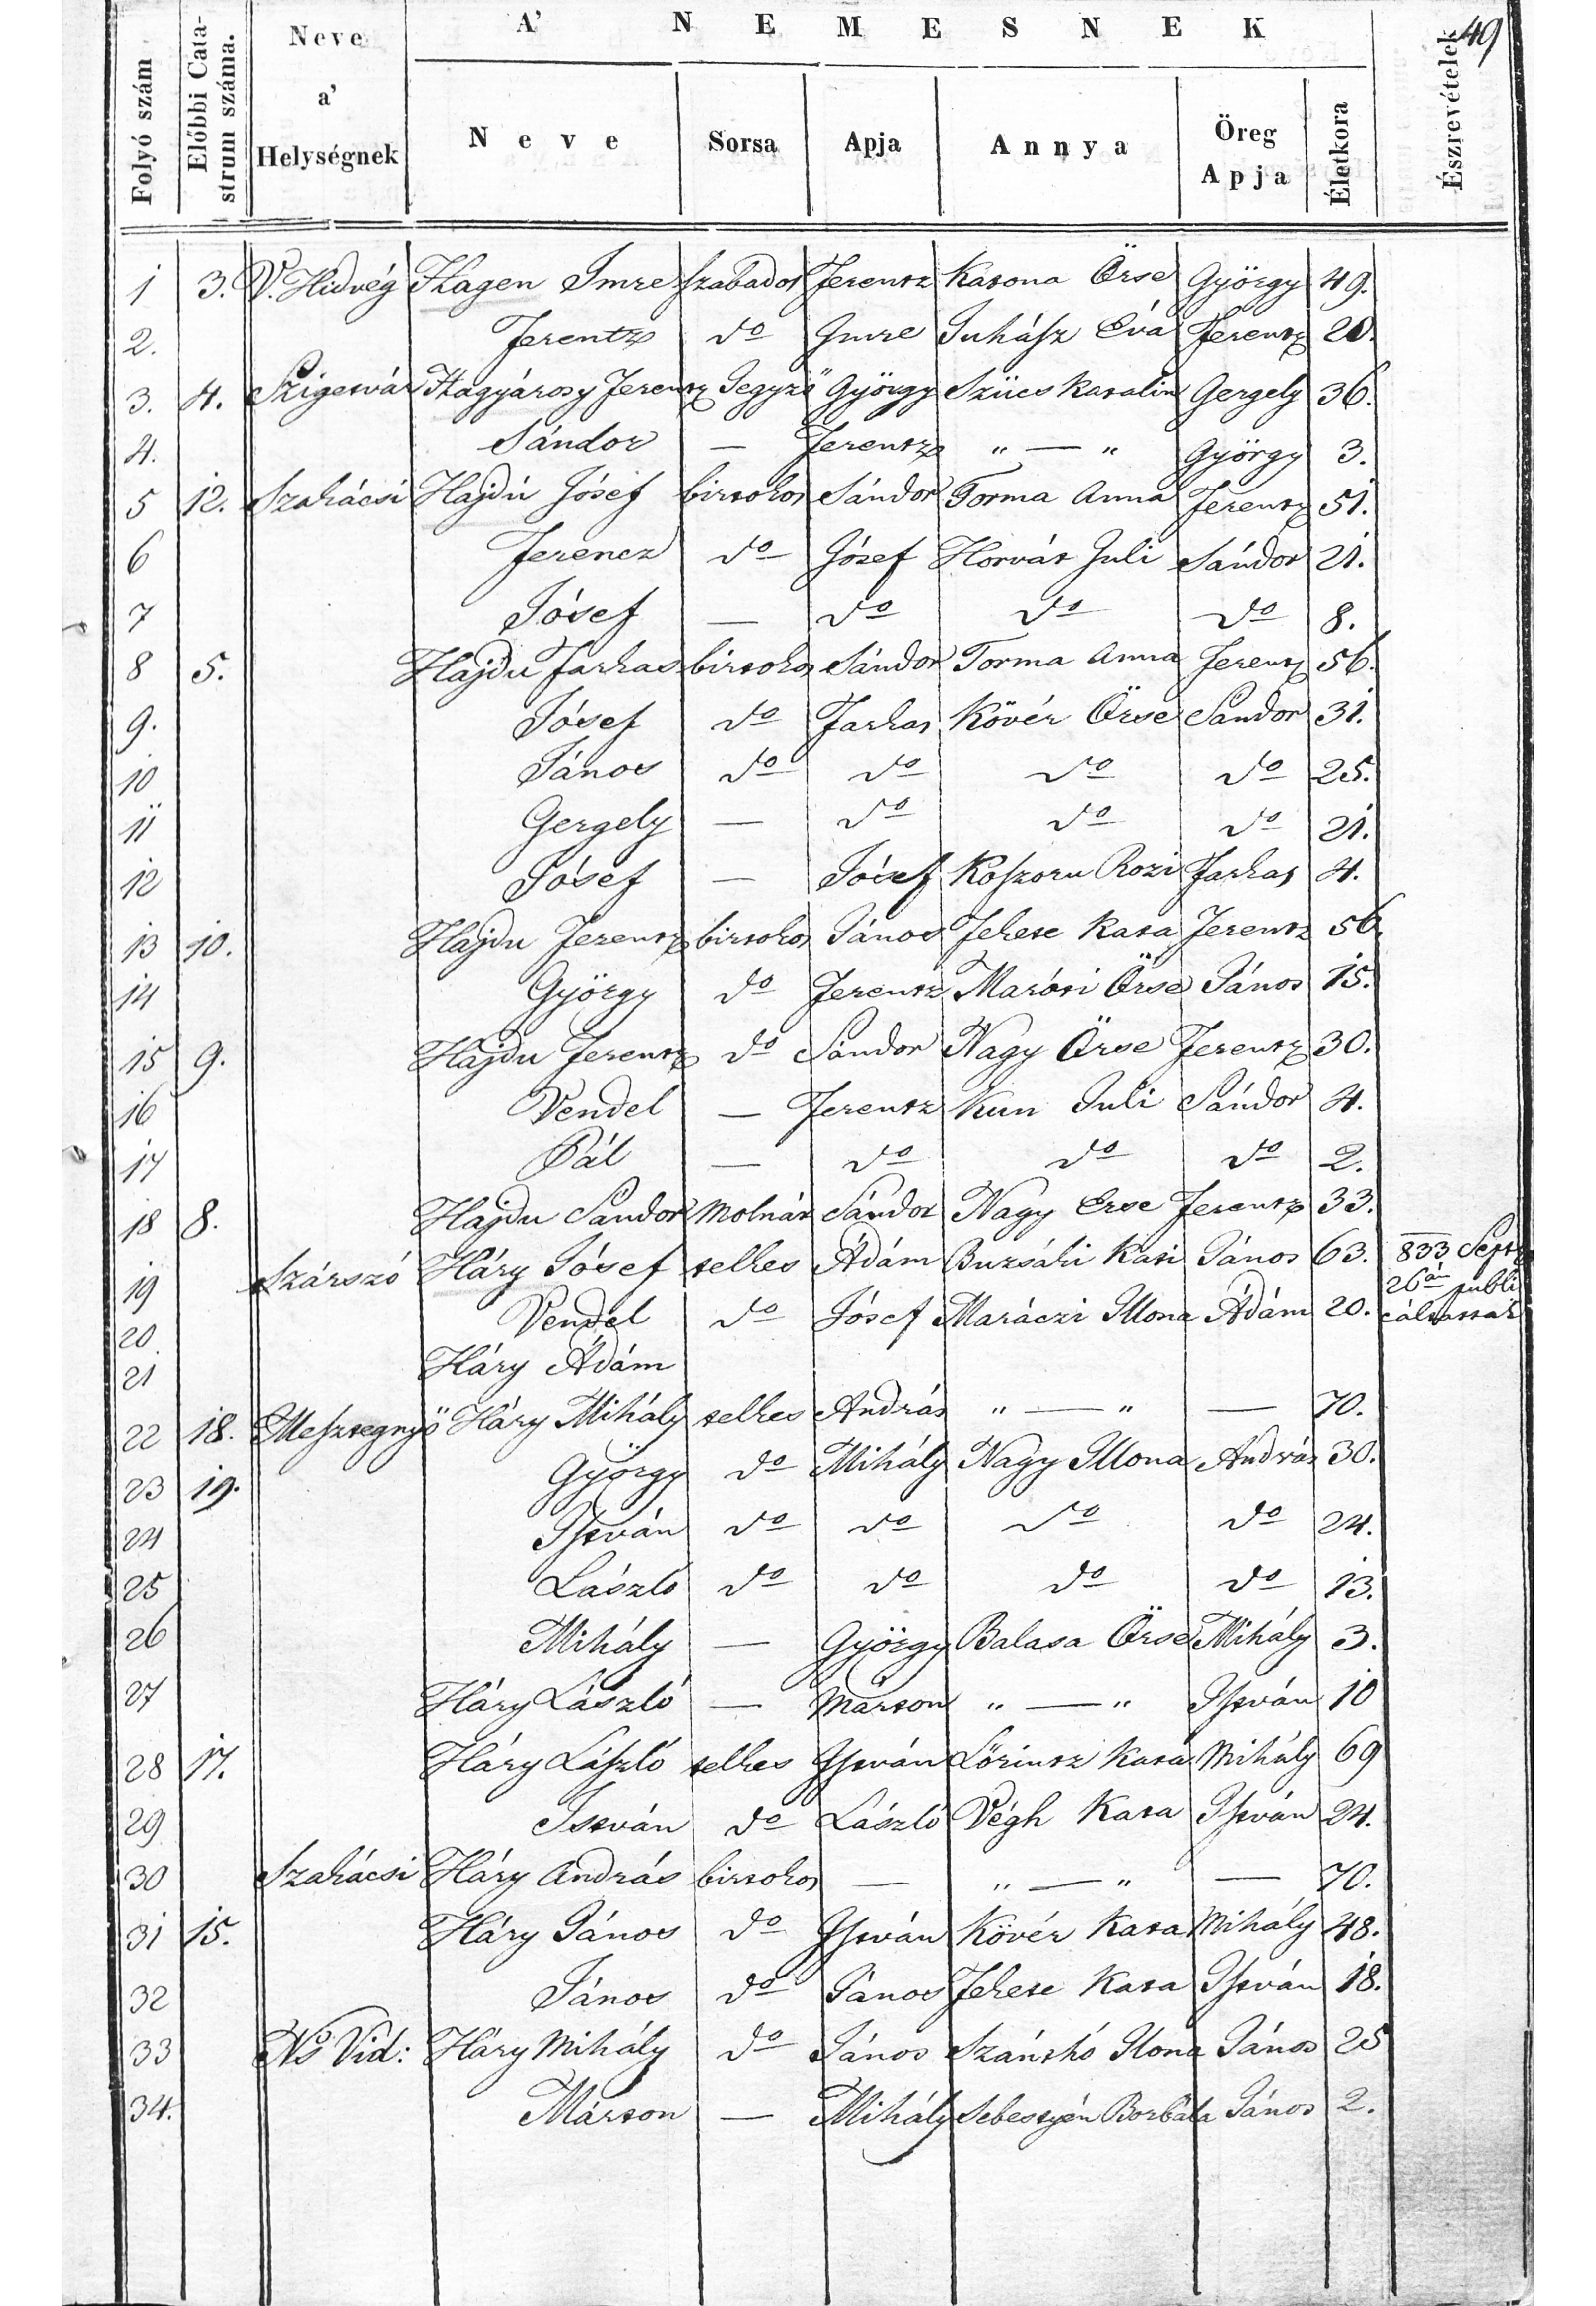 49
Folyó szám | Előbbi Catastrum száma. | Neve a' Helységnek | A' NEMESNEK | Észrevételek
Neve | Sorsa | Apja | Annya | Öreg Apja | Életkora
1 | 3. | V. Hidvég | Hagen Imre | szabados | Ferentz | Katona Örse | György | 49.
2. | Ferentz | do | Imre | Juhász Éva | Ferentz | 20.
3. | 4. | Szigetvár | Hagyárosy Ferentz | Jegyző | György | Szücs Katalin | Gergely | 36.
4. | Sándor | — | Ferentz | „ — „ | György | 3.
5 | 12. | Szakácsi | Hajdú Jósef | birtokos | Sándor | Torma Anna | Ferentz | 51.
6 | Ferencz | do | Jósef | Horvát Juli | Sándor | 21.
7 | Jósef | — | do | do | do | 8.
8 | 5. | Hajdu Farkas | birtokos | Sándor | Torma Anna | Ferentz | 56.
9. | Jósef | do | Farkas | Kövér Örse | Sandor | 31.
10 | János | do | do | do | do | 25.
11 | Gergely | — | do | do | do | 21.
12 | Jósef | — | Jósef | Koszoru Rozi | Farkas | 4.
13 | 10. | Hajdu Ferentz | birtokos | János | Fekete Kata | Ferentz | 56.
14 | György | do | Ferentz | Maróti Örse | János | 15.
15 | 9. | Hajdu Ferentz | do | Sándor | Nagy Örse | Ferentz | 30.
16 | Vendel | — | Ferentz | Kun Juli | Sándor | 4.
17 | Pál | — | do | do | do | 2.
18 | 8. | Hajdu Sandor | Molnár | Sándor | Nagy Erse | Ferentz | 33.
19 | Szárszó | Háry Jósef | telkes | Ádám | Buzsáki Kati | János | 63. | 833 Septr
26án publi
20. | Vendel | do | Jósef | Maráczi Illona | Ádám | 20. | cáltattak
21 | Háry Ádám
22 | 18. | Mesztegnyö | Háry Mihály | telkes | András | „ — „ | — | 70.
23 | 19. | György | do | Mihály | Nagy Illona | András | 30.
24 | István | do | do | do | do | 24.
25 | László | do | do | do | do | 13.
26 | Mihály | — | György | Balasa Örse | Mihály | 3.
27 | Háry László | — | Márton | „ — „ | István | 10
28 | 17. | Háry László | telkes | István | Lörintz Kata | Mihály | 69
29 | István | do | László | Végh Kata | István | 24.
30 | Szakácsi | Háry András | birtokos | — | „ — „ | — | 70.
31 | 15. | Háry János | do | István | Kövér Kata | Mihály | 48.
32 | János | do | János | Fekete Kata | István | 18.
33 | Ns Vid: | Háry Mihály | do | János | Szánthó Ilona | János | 25
34. | Márton | — | Mihály | Sebestyén Borbála | János | 2.